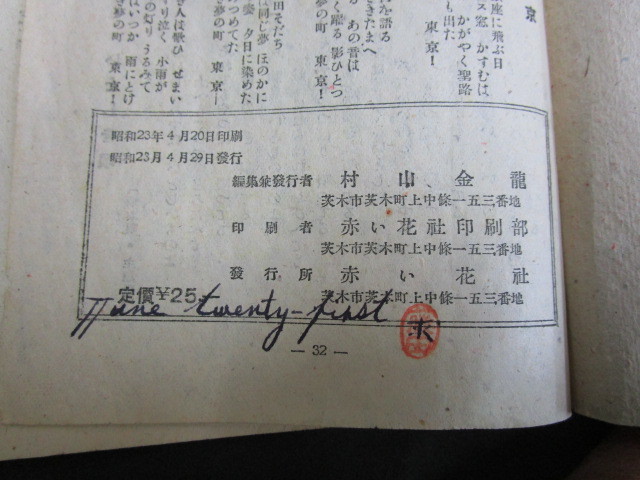 京
座に飛ぶ日
ス窓 かすむは
かがやく聖路
も出た
東京!
を語る
きたまへ
あの音は
く躍る 影ひとつ
東京!
田そだち
は同じ夢 ほのかに
窓 夕日に染めた
みつめてた
夢の町 東京!
人は歌ひ せまい
り泣く 小雨が
の灯り うるみて
はいつか 雨にとけ
夢の町 東京!
昭和23年4月20日印刷
昭和23月4月29日発行
編集兼發行者 村山金龍
茨木市茨木町上中條一五三番地
印刷者 赤い花社印刷部
茨木市茨木町上中條一五三番地
發行所 赤い花社
茨木市茨木町上中條一五三番地
定價¥25
June twenty-first
— 32 —